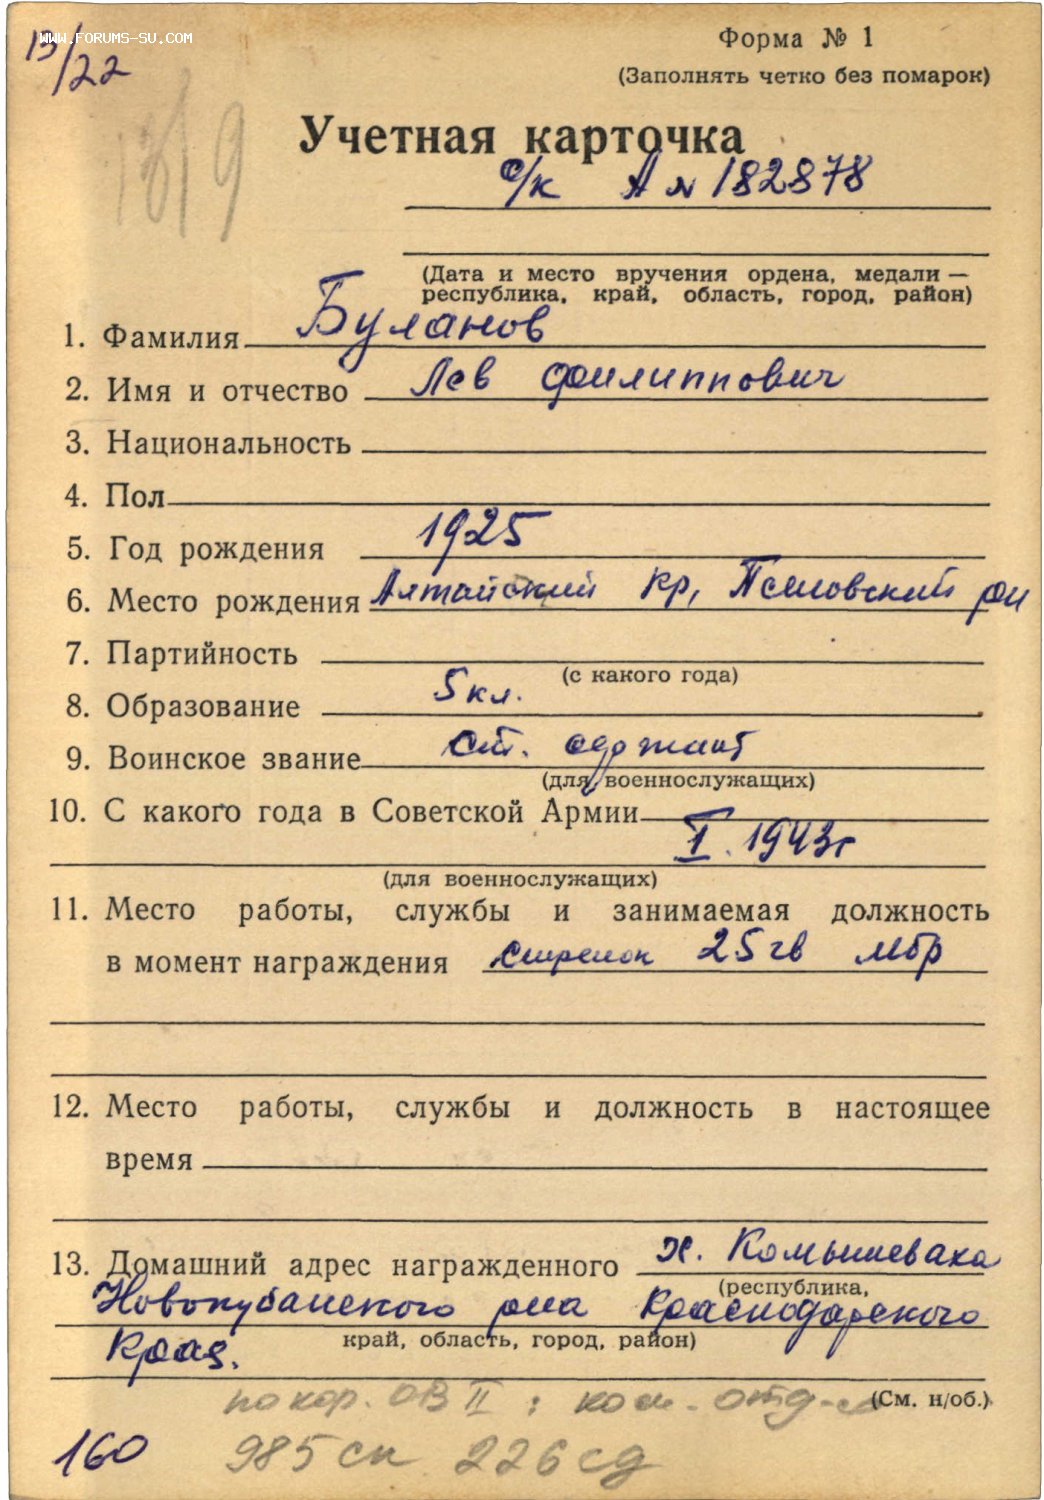 WWW.FORUMS-SU.COM
13/22
Форма № 1
(Заполнять четко без помарок)
Учетная карточка
о/к А № 182878
(Дата и место вручения ордена, медали —
республика, край, область, город, район)
1. Фамилия Буланов
2. Имя и отчество Лев Филиппович
3. Национальность
4. Пол
5. Год рождения 1925
6. Место рождения Алтайский кр,
7. Партийность
(с какого года)
8. Образование 5 кл.
9. Воинское звание ст. сержант
(для военнослужащих)
10. С какого года в Советской Армии
I. 1943 г
(для военнослужащих)
11. Место работы, службы и занимаемая должность
в момент награждения стрелок 25 гв мбр
12. Место работы, службы и должность в настоящее
время
13. Домашний адрес награжденного х. Комышеваха
(республика,
Новокубанского р-на Краснодарского
край, область, город, район)
края.
(См. н/об.)
по кор. ОВ II : ком. отд-я
160 985 сп 226 сд